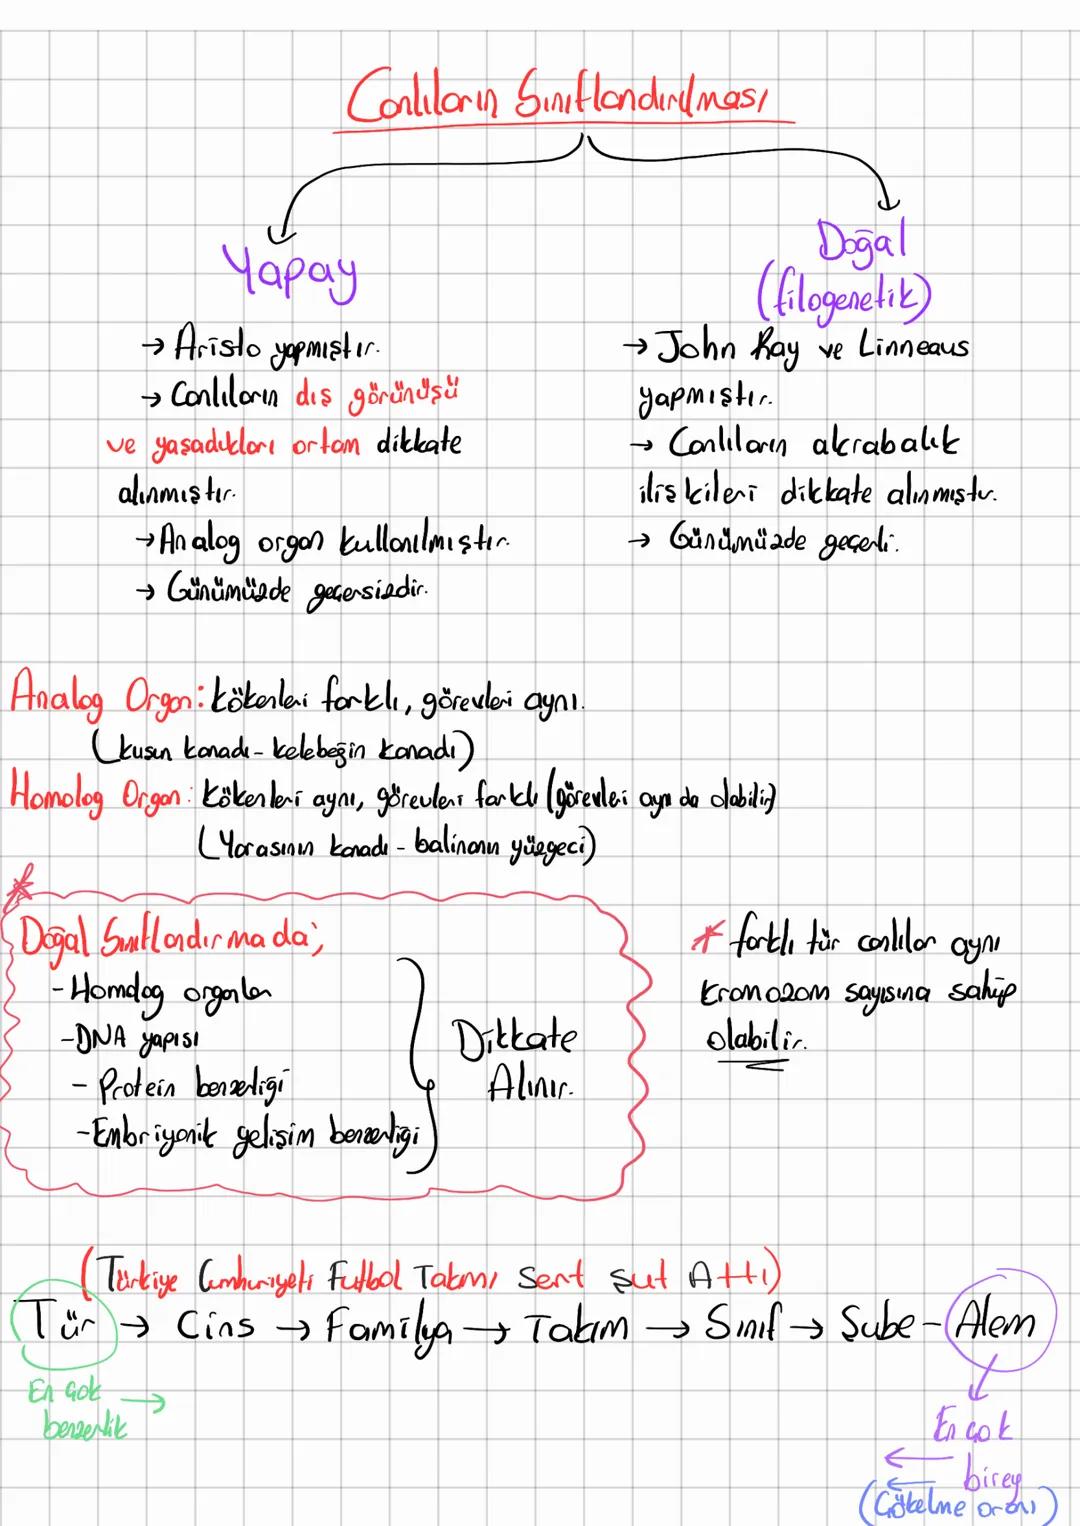 Canlıların Sınıflandırılması
Yapay
→ Aristo yapmıştır.
→ Canlıların dış görünüşü
ve yaşadıkları ortam dikkate
alınmıştır.
→ Analog organ kullanılmıştır.
→ Günümüzde geçersizdir.
Doğal
(filogenetik)
→ John Ray ve Linneaus
yapmıştır.
→ Canlıların akrabalık
ilişkileri dikkate alınmıştır.
→ Günümüzde geçerli.
Analog Organ: kökenleri farklı, görevleri aynı.
(kuşun kanadı - kelebeğin kanadı)
Homolog Organ: kökenleri aynı, görevleri farklı (görevleri aynı da olabilir)
(Yarasının kanadı - balinanın yüzgeci)
* Doğal Sınıflandırmada;
- Homolog organlar
- DNA yapısı
- Protein benzerliği
- Embriyonik gelişim benzerliği
Dikkate
Alınır.
* farklı tür canlılar aynı
kromozom sayısına sahip
olabilir.
(Türkiye Cumhuriyeti Futbol Takımı Sert Şut Attı)
Tür → Cins → Familya → Takım → Sınıf → Şube - Alem
En çok →
benzerlik
En çok
← birey
← (Çökelme oranı)